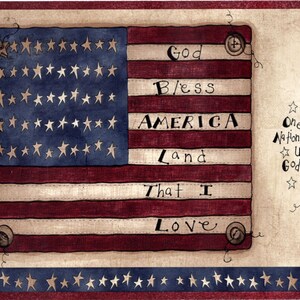 God
Bless
AMERICA
Land
That I
Love
One
Nation
U
God